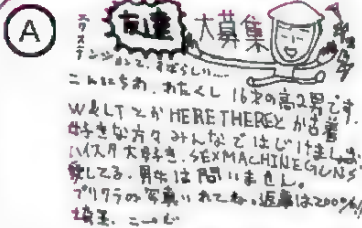 A
友達 大募集
エクステンションって、すばらしい…
こんにちわ。わたくし 16才の高2男です。
W&LTとかHERE THEREとか古着
好きな方々みんなではじけましょう
ハイスタ大好き。SEX MACHINEGUNS
愛してる。男女は問いません。
プリクラか写真いれてね。返事は200%
埼玉